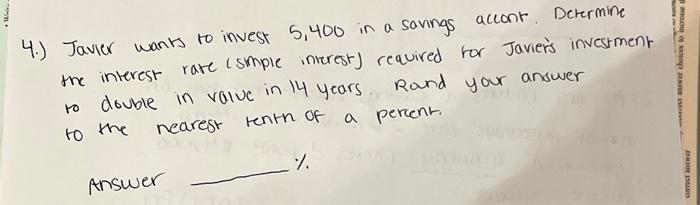 4.) Javier wants to invest 5,400 in a savings accont. Determine
the interest rate (simple interest) required for Javier's investment
to double in value in 14 years. Rand your answer
to the nearest tenth of a percent.
Answer ______ %
correct answer
answer choices to increase